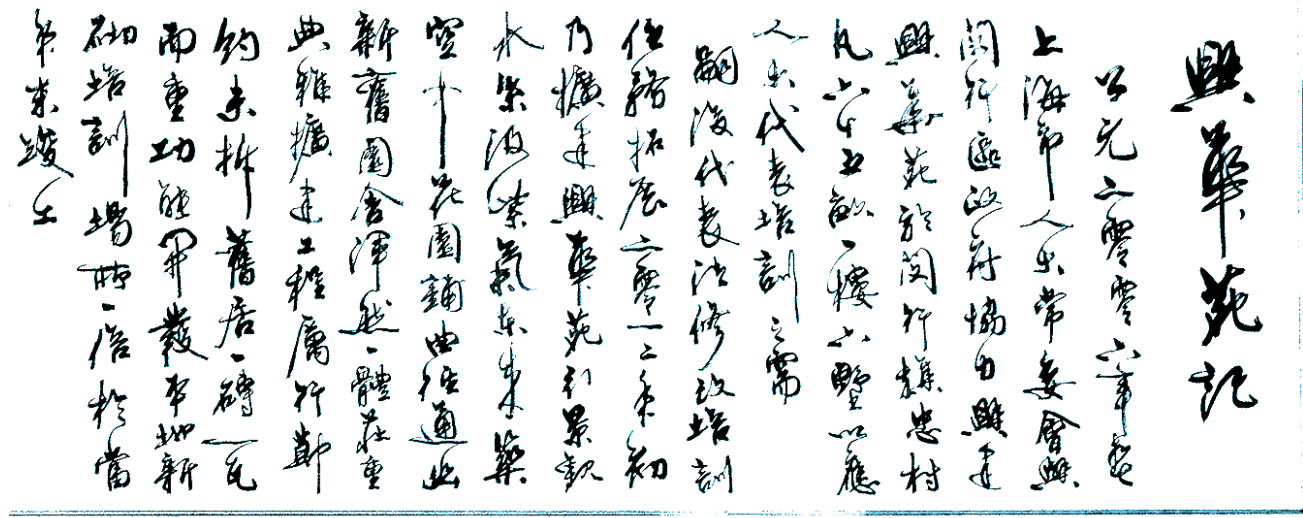 興華苑記
公元二零零六年春
上海市人大常委會與
閔行區政府協力興建
興華苑於閔行旗忠村
凡六十五畝一樓六墅以應
人大代表培訓之需
嗣後代表法修改培訓
任務拓展二零一二年初
乃擴建興華苑引景觀
水渠波紫氣東來築
空中花園鋪曲徑通幽
新舊園舍渾然一體莊重
典雅擴建工程厲行節
約未拆舊居一磚一瓦
而重功能開發本地新
砌培訓場所一倍於當
年末竣工